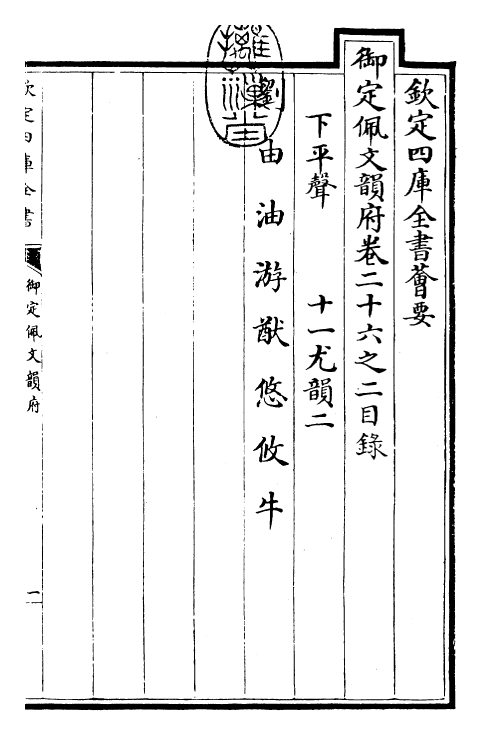 欽定四庫全書薈要
御定佩文韻府卷二十六之二目錄
下平聲 十一尤韻二
劉由油游猷悠攸牛
欽定四庫全書
御定佩文韻府
一